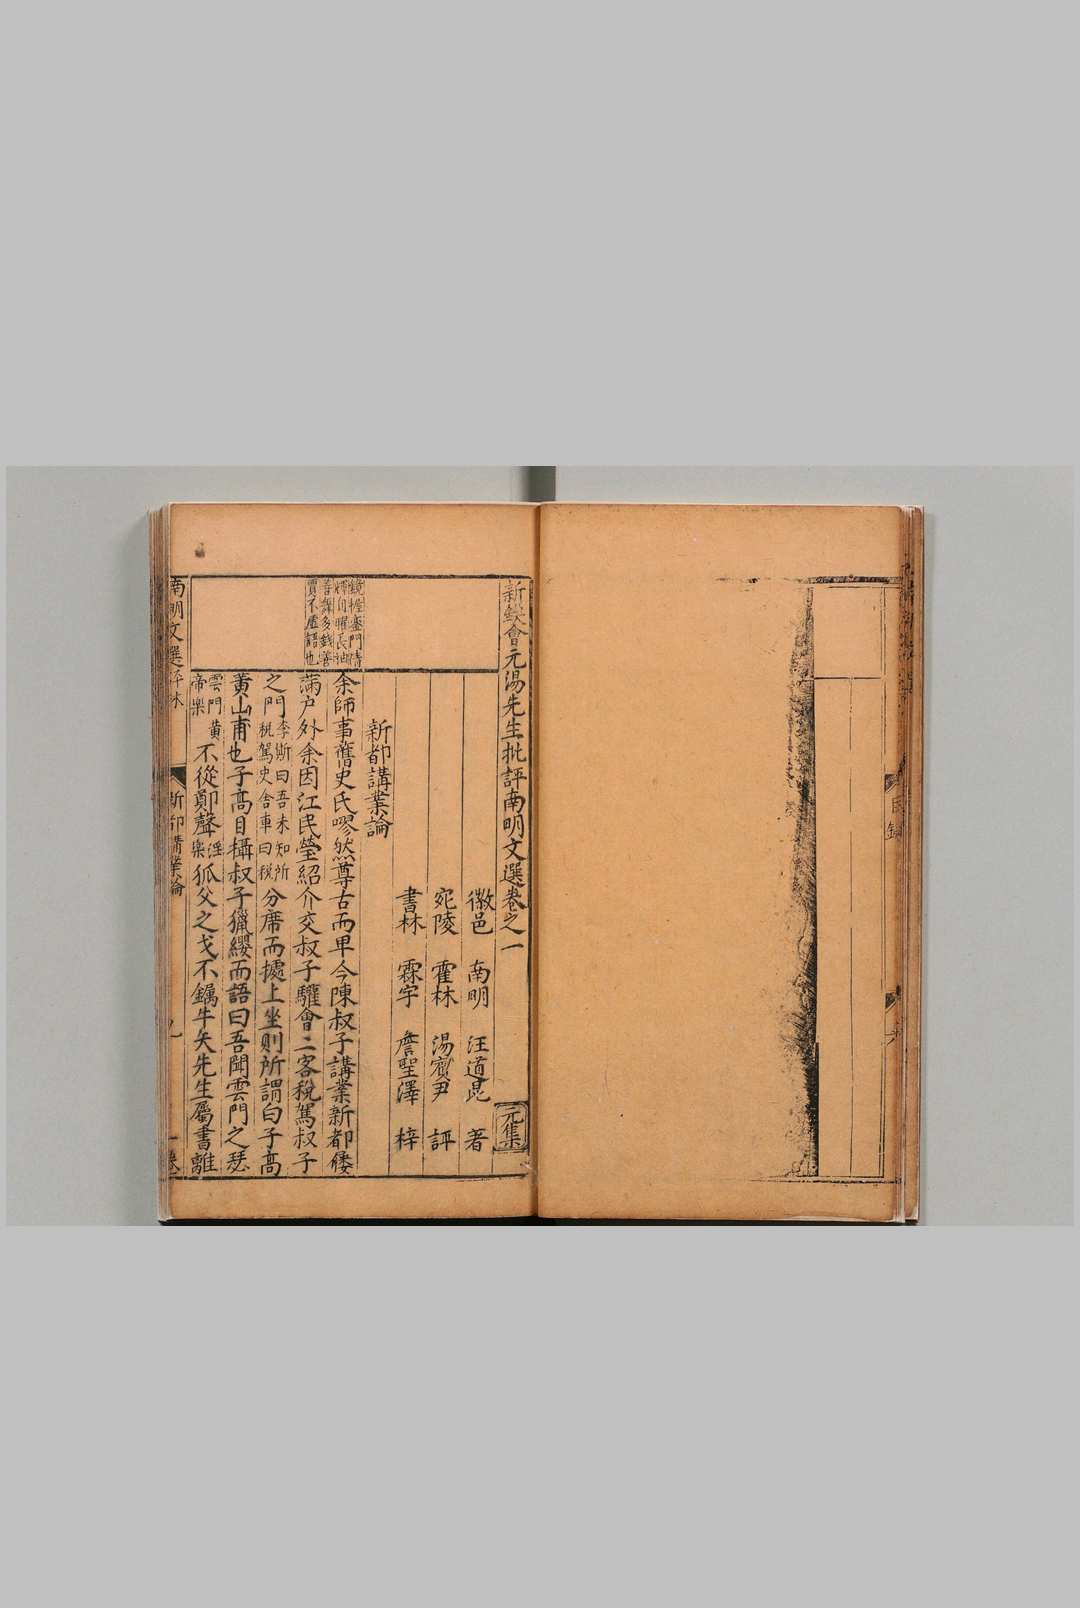 新鍥會元湯先生批評南明文選卷之一
元集
徽邑 南明 汪道昆 著
宛陵 霍林 湯賓尹 評
書林 霖宇 詹聖澤 梓
新都講業論
余師事舊史氏嘐然尊古而卑今陳叔子講業新都屨
滿户外余因江民瑩紹介交叔子驩會二客稅駕叔子
之門李斯曰吾未知所稅駕史舍車曰稅分席而據上坐則所謂白子高
黃山甫也子高目攝叔子獵纓而語曰吾聞雲門之瑟
雲門黃帝樂不從鄭聲淫樂狐父之戈不钃牛矢先生屬書離
善舞多錢善
賈不虛語也
南明文選評林
新都講業論
九